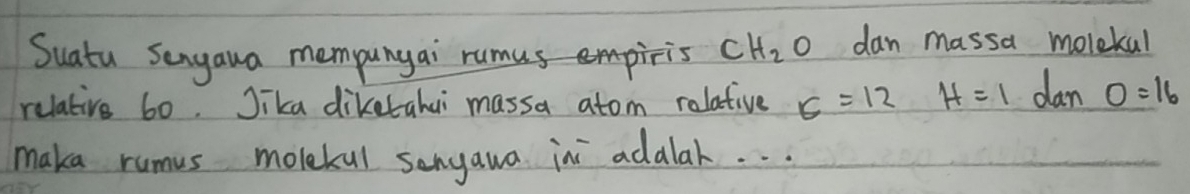 Suatu senyawa mempunyai rumus empiris CH₂O dan massa molekul
relative 60. Jika diketahui massa atom relative C = 12 H = 1 dan O = 16
maka rumus molekul senyawa ini adalah ...